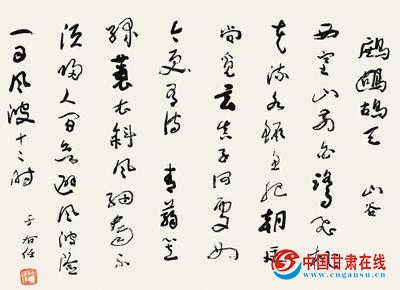 鷓鴣天 山谷
西塞山前白鷺飛桃
花流水鱖魚肥朝廷
尚覓玄真子何處如
今更有詩 青蒻笠
綠蓑衣斜風細雨不
須歸人間欲避風波險
一日風波十二時
于右任
中国甘肃在线
www.cngansu.cn